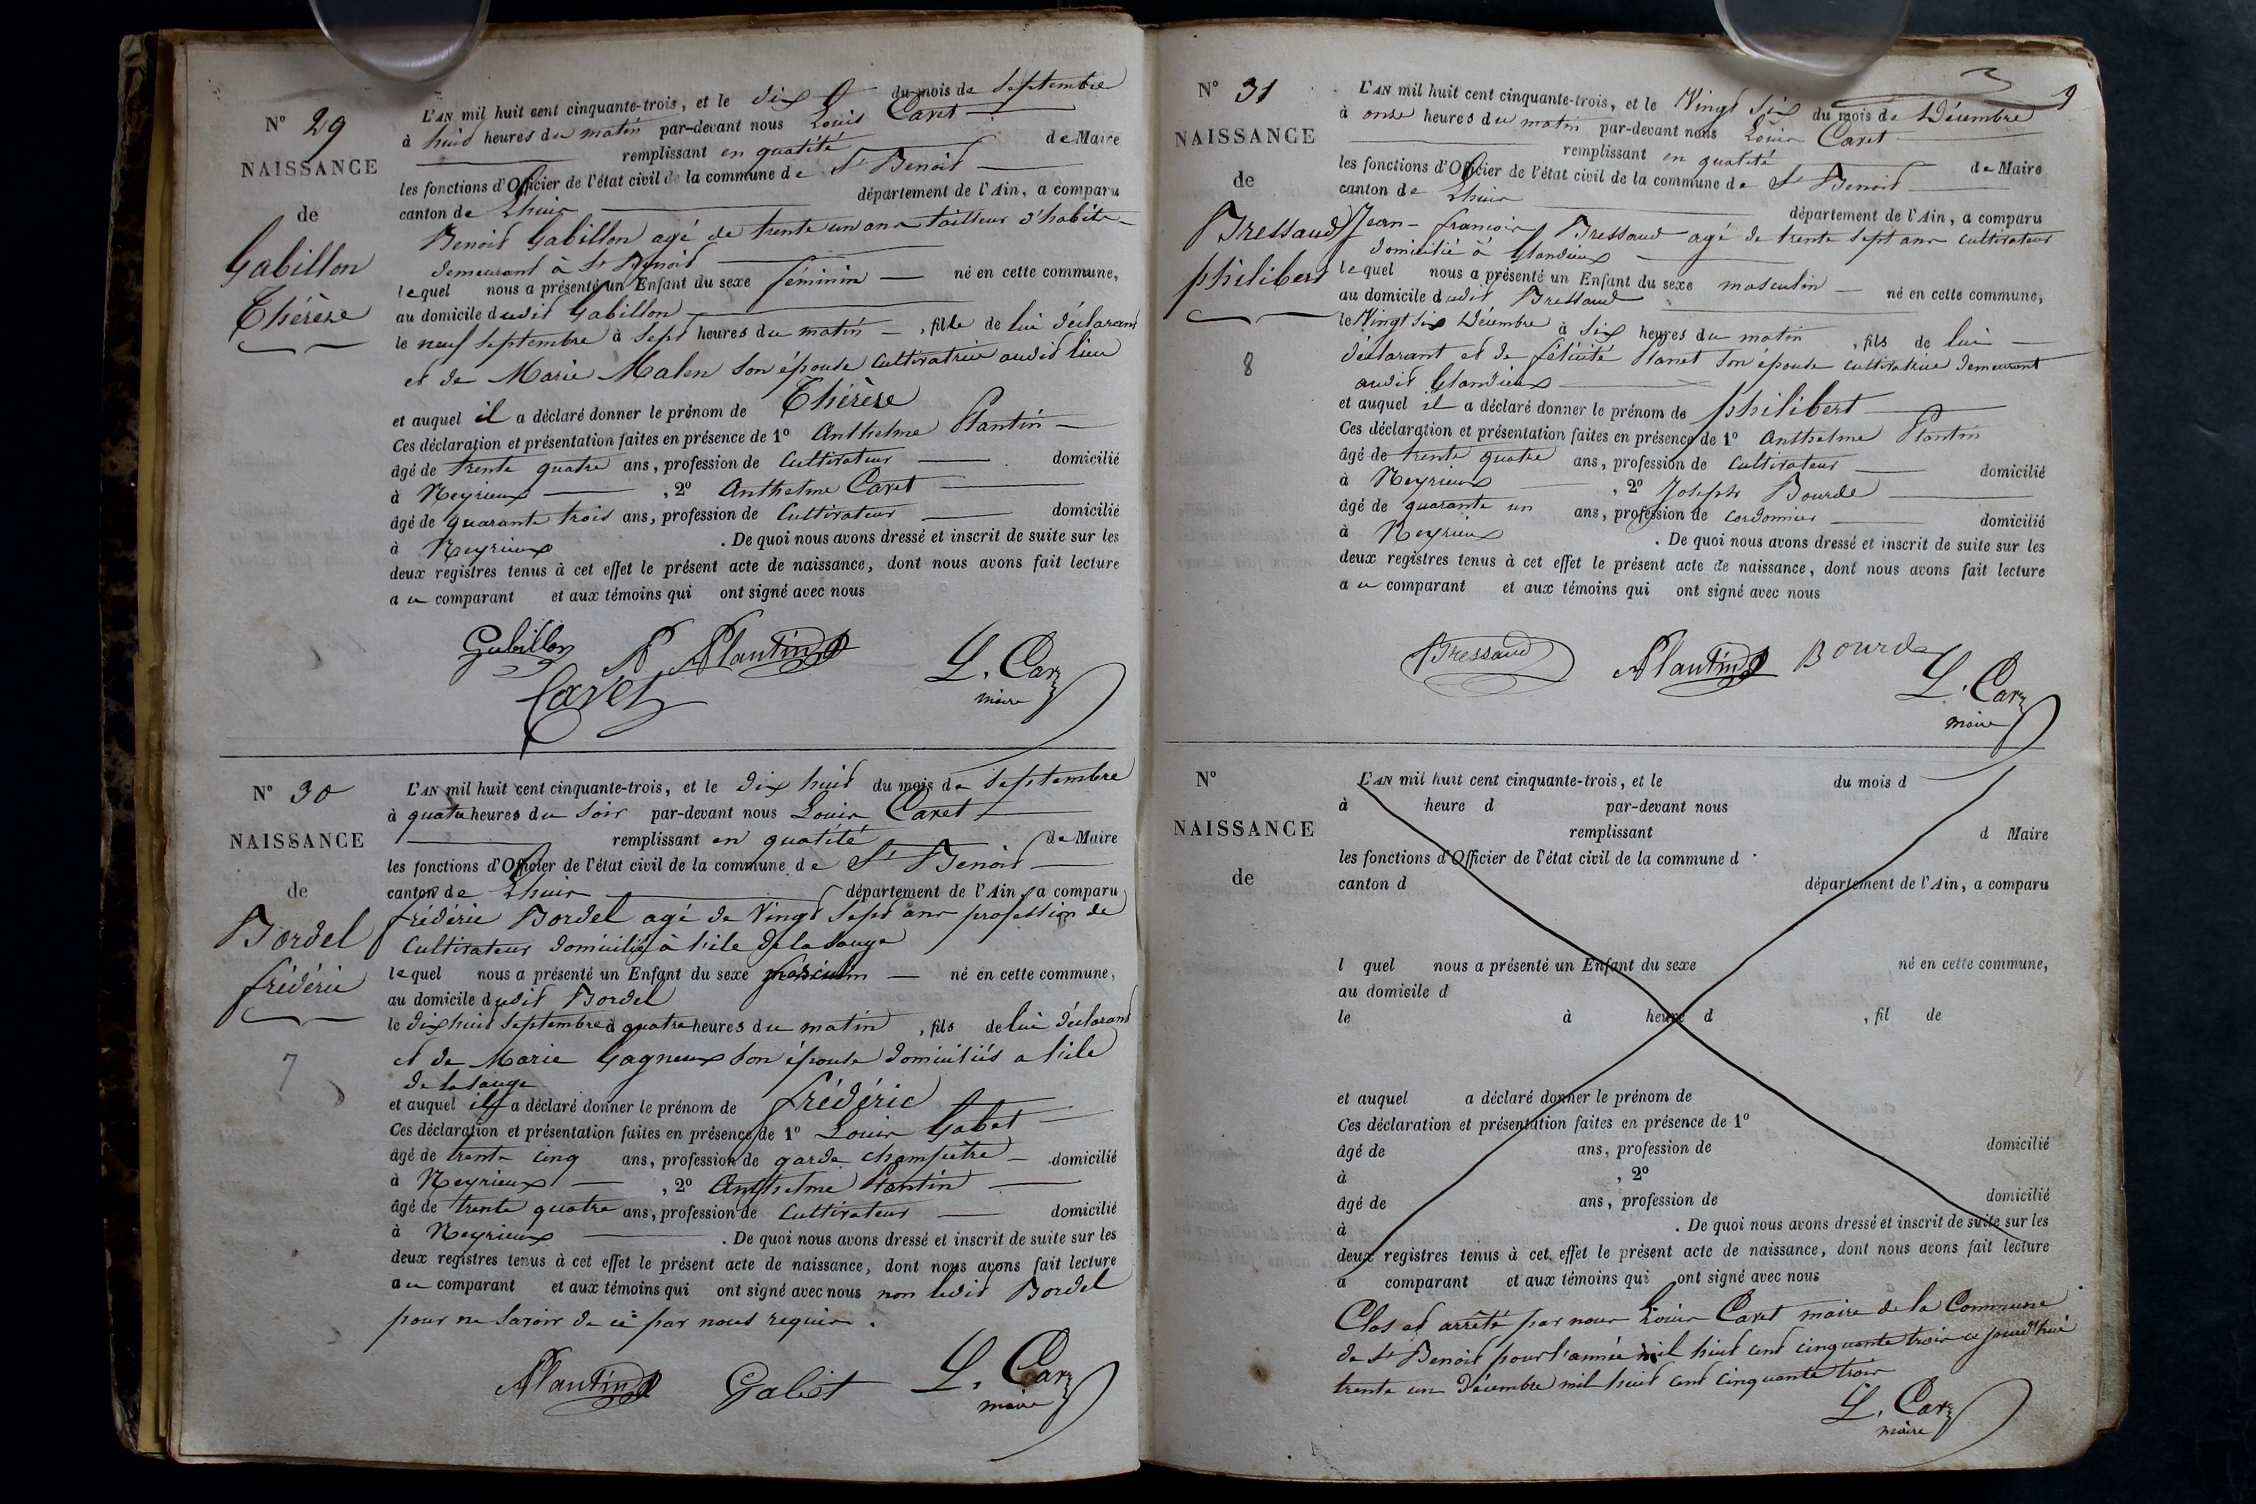 N° 29
NAISSANCE
de
Gabillon
Thérèse
L'AN mil huit cent cinquante-trois, et le dix du mois de Septembre
à huit heures du matin par-devant nous Louis Caret
remplissant en qualité de Maire
les fonctions d'Officier de l'état civil de la commune de St Benoit
canton de Lhuis département de l'Ain, a comparu
Benoit Gabillon agé de trente un ans tailleur d'habits
demeurant à St Benoit
lequel nous a présenté un Enfant du sexe féminin né en cette commune,
au domicile dudit Gabillon
le neuf septembre à sept heures du matin, fille de lui déclarant
et de Marie Malen son épouse cultivatrice audit lieu
et auquel il a déclaré donner le prénom de Thérèse
Ces déclaration et présentation faites en présence de 1° Anthelme Plantin
âgé de trente quatre ans, profession de Cultivateur domicilié
à Neyrieux, 2° Anthelme Caret
âgé de quarante trois ans, profession de Cultivateur domicilié
à Neyrieux. De quoi nous avons dressé et inscrit de suite sur les
deux registres tenus à cet effet le présent acte de naissance, dont nous avons fait lecture
au comparant et aux témoins qui ont signé avec nous
Gabillon A Plantin L. Car
Caret maire
N° 30
NAISSANCE
de
Bordel
frédéric
7
L'AN mil huit cent cinquante-trois, et le dix huit du mois de Septembre
à quatre heures du soir par-devant nous Louis Caret
remplissant en qualité de Maire
les fonctions d'Officier de l'état civil de la commune de St Benoit
canton de Lhuis département de l'Ain, a comparu
frédéric Bordel agé de Vingt sept ans profession de
Cultivateur domicilié à l'ile de la sauge
lequel nous a présenté un Enfant du sexe masculin né en cette commune,
au domicile dudit Bordel
le dix huit septembre à quatre heures du matin, fils de lui déclarant
et de Marie Gagneux son épouse domiciliés a l'ile
de la sauge
et auquel il a déclaré donner le prénom de frédéric
Ces déclaration et présentation faites en présence de 1° Louis Gabet
âgé de trente cinq ans, profession de garde champêtre domicilié
à Neyrieux, 2° Anthelme Plantin
âgé de trente quatre ans, profession de Cultivateur domicilié
à Neyrieux. De quoi nous avons dressé et inscrit de suite sur les
deux registres tenus à cet effet le présent acte de naissance, dont nous avons fait lecture
au comparant et aux témoins qui ont signé avec nous non ledit Bordel
pour ne savoir de ce par nous requis.
A Plantin Gabet L. Car
maire
9
N° 31
NAISSANCE
de
Bressaud
philibert
8
L'AN mil huit cent cinquante-trois, et le Vingt six du mois de Décembre
à onze heures du matin par-devant nous Louis Caret
remplissant en qualité de Maire
les fonctions d'Officier de l'état civil de la commune de St Benoit
canton de Lhuis département de l'Ain, a comparu
Jean-françois Bressaud agé de trente sept ans cultivateur
domicilié à Glandieux
lequel nous a présenté un Enfant du sexe masculin né en cette commune,
au domicile dudit Bressaud
le Vingt six Décembre à six heures du matin, fils de lui
déclarant et de félicité son épouse cultivatrice demeurant
audit Glandieux
et auquel il a déclaré donner le prénom de philibert
Ces déclaration et présentation faites en présence de 1° Anthelme Plantin
âgé de trente quatre ans, profession de Cultivateur domicilié
à Neyrieux, 2° Joseph Bourde
âgé de quarante un ans, profession de cordonnier domicilié
à Neyrieux. De quoi nous avons dressé et inscrit de suite sur les
deux registres tenus à cet effet le présent acte de naissance, dont nous avons fait lecture
au comparant et aux témoins qui ont signé avec nous
Bressaud A Plantin Bourde L. Car
maire
N°
NAISSANCE
de
L'AN mil huit cent cinquante-trois, et le du mois d
à heure d par-devant nous
remplissant d Maire
les fonctions d'Officier de l'état civil de la commune d
canton d département de l'Ain, a comparu
l quel nous a présenté un Enfant du sexe né en cette commune,
au domicile d
le à heure d, fil de
et auquel a déclaré donner le prénom de
Ces déclaration et présentation faites en présence de 1°
âgé de ans, profession de domicilié
à, 2°
âgé de ans, profession de domicilié
à. De quoi nous avons dressé et inscrit de suite sur les
deux registres tenus à cet effet le présent acte de naissance, dont nous avons fait lecture
a comparant et aux témoins qui ont signé avec nous
Clos et arrêté par nous Louis Caret maire de la Commune
de St Benoit pour l'année mil huit cent cinquante trois ce jourd'hui
trente un Décembre mil huit cent cinquante trois
L. Car
maire